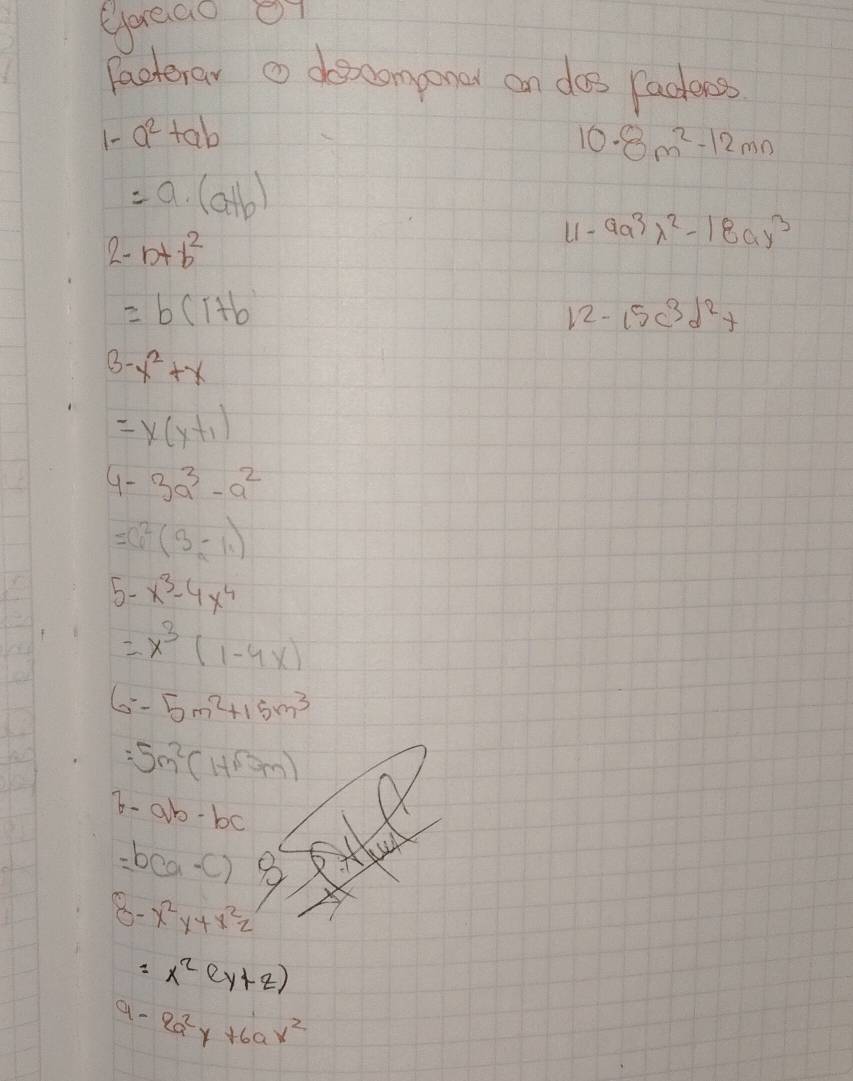 Ejercicio 89
Factorar o descomponer en dos factores.
1- a² + ab
= a. (a+b)
2- b+b²
= b(1+b
3- x² + x
= x(x+1)
4- 3a³ - a²
= a²(3a-1)
5- x³-4x⁴
= x³ (1-4x)
6- 5m²+15m³
= 5m²(1+3m)
7- ab - bc
= b(a-c)
8- x²y+x²z
= x²(y+z)
9- 2a²x +6ax²
10- 8m²-12mn
11- 9a³x²-18ax³
12- 15c³d²+